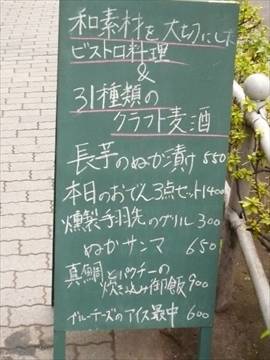 和素材を大切にした
ビストロ料理
&
31種類の
クラフト麦酒
長芋のぬか漬け 550
本日のおでん3点セット 1400
燻製手羽先のグリル 300
ぬかサンマ 650
真鯛とパクチーの
炊き込み御飯 900
ブルーチーズのアイス最中 600